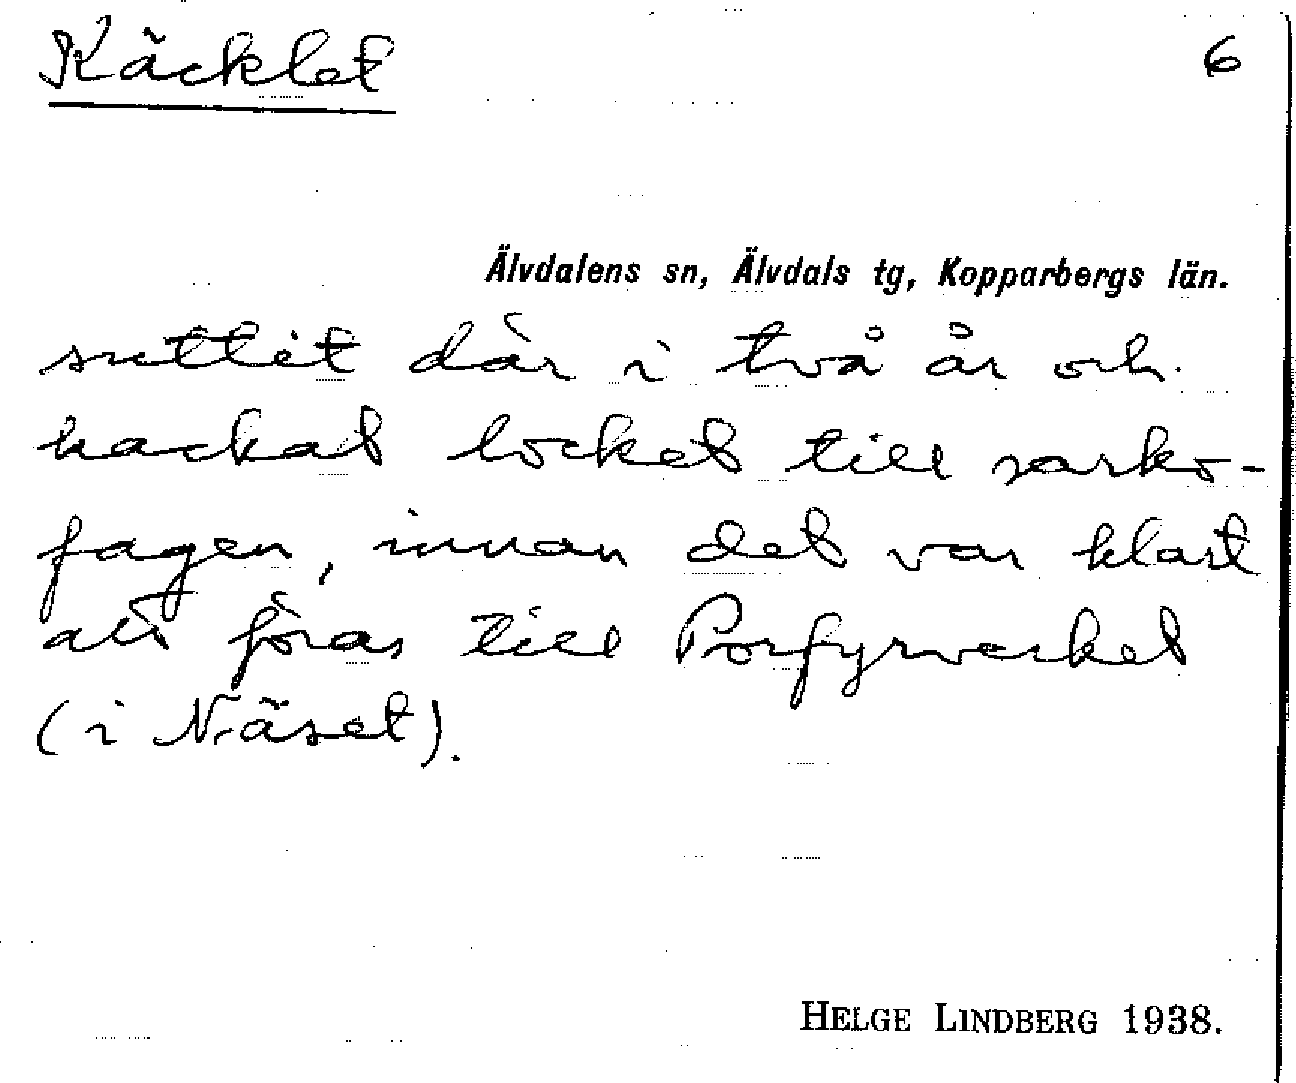 Käcklet 6
Älvdalens sn, Älvdals tg, Kopparbergs län.
suttit där i två år och
hackat locket till sarko-
fagen, innan det var klart
att föras till Porfyrverket
(i Näset).
HELGE LINDBERG 1938.